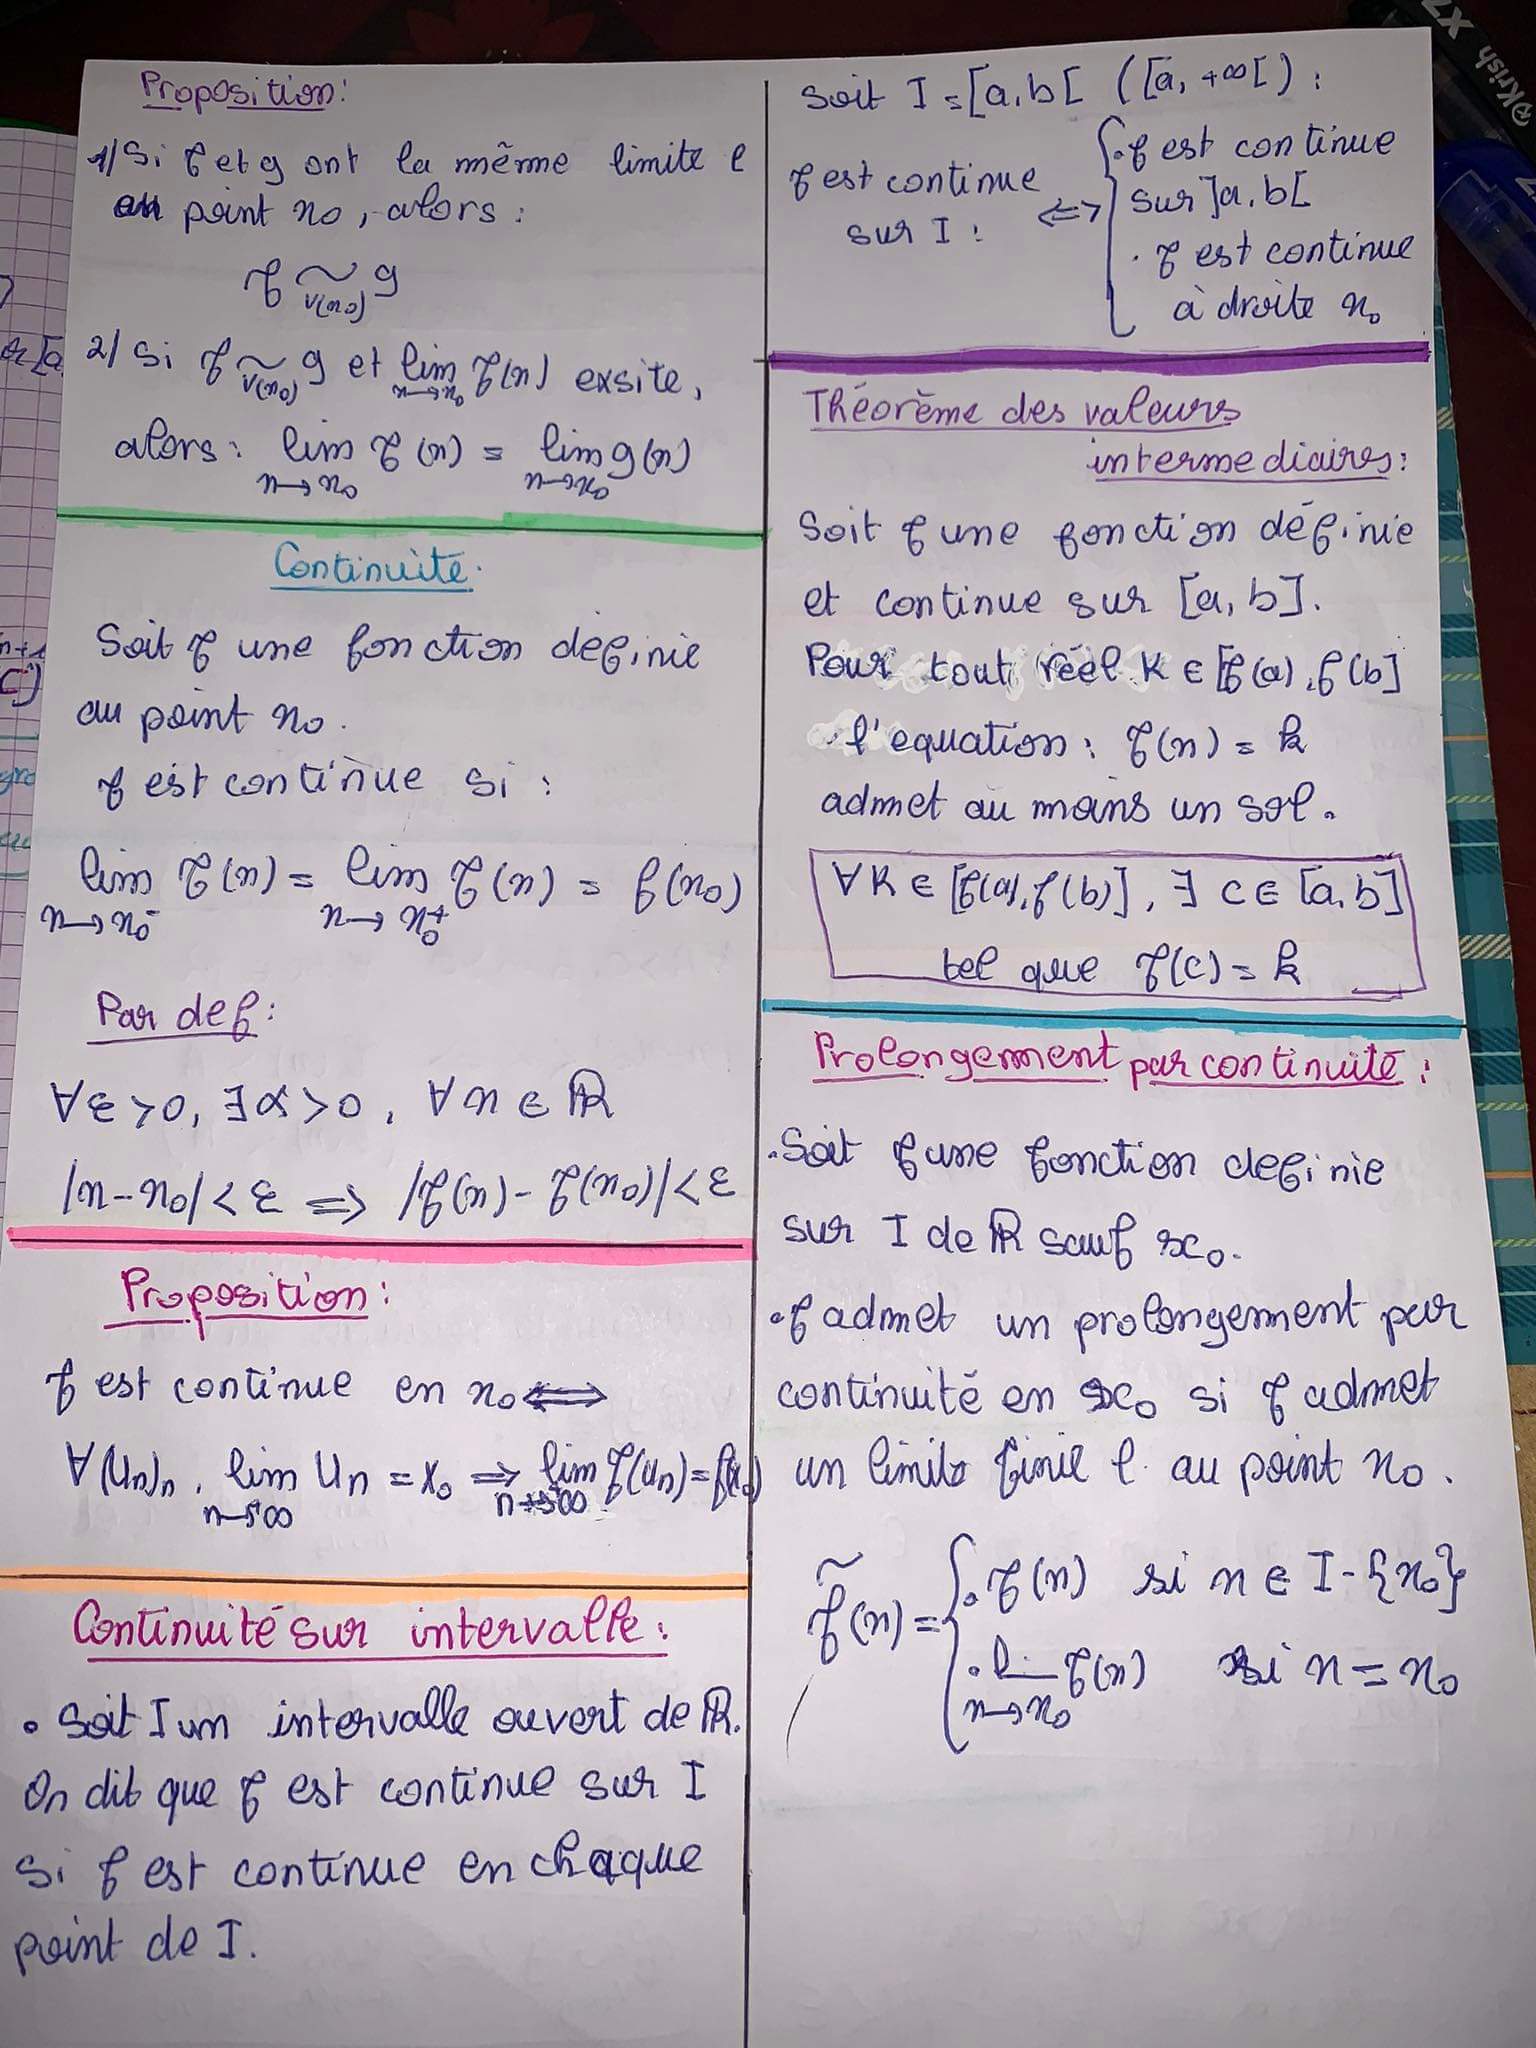 Proposition:
1/ Si f et g ont la même limite l
au point x₀, alors:
f ~ g
V(x₀)
2/ Si f ~ g et lim f(x) exsite,
V(x₀) x→x₀
alors: lim f(x) = lim g(x)
x→x₀ x→x₀
Continuité.
Soit f une fonction définie
au point x₀.
f est continue si:
lim f(x) = lim f(x) = f(x₀)
x→x₀⁻ x→x₀⁺
Par def:
∀ε>0, ∃α>0, ∀x∈ℝ
|x-x₀|<ε ⟹ |f(x)-f(x₀)|<ε
Proposition:
f est continue en x₀ ⟺
∀(Un)n, lim Un = x₀ ⟹ lim f(un) = f(x₀)
n→+∞ n→+∞
Continuité sur intervalle:
• Soit I un intervalle ouvert de ℝ.
On dit que f est continue sur I
si f est continue en chaque
point de I.
Soit I = [a,b[ ([a,+∞[):
f est continue
sur I: ⟺
• f est continue
sur ]a,b[
• f est continue
à droite x₀
Théorème des valeurs
intermediaires:
Soit f une fonction définie
et continue sur [a,b].
Pour tout réel K ∈ [f(a),f(b]
l'equation: f(x) = k
admet au moins un sol.
∀K ∈ [f(a),f(b)], ∃ c ∈ [a,b]
tel que f(c) = k
Prolongement par continuité:
• Soit f une fonction definie
sur I de ℝ sauf x₀.
• f admet un prolongement par
continuité en x₀ si f admet
un limite finie l au point x₀.
f̃(x) = { • f(x) si x ∈ I-{x₀}
• lim f(x) si x = x₀
x→x₀